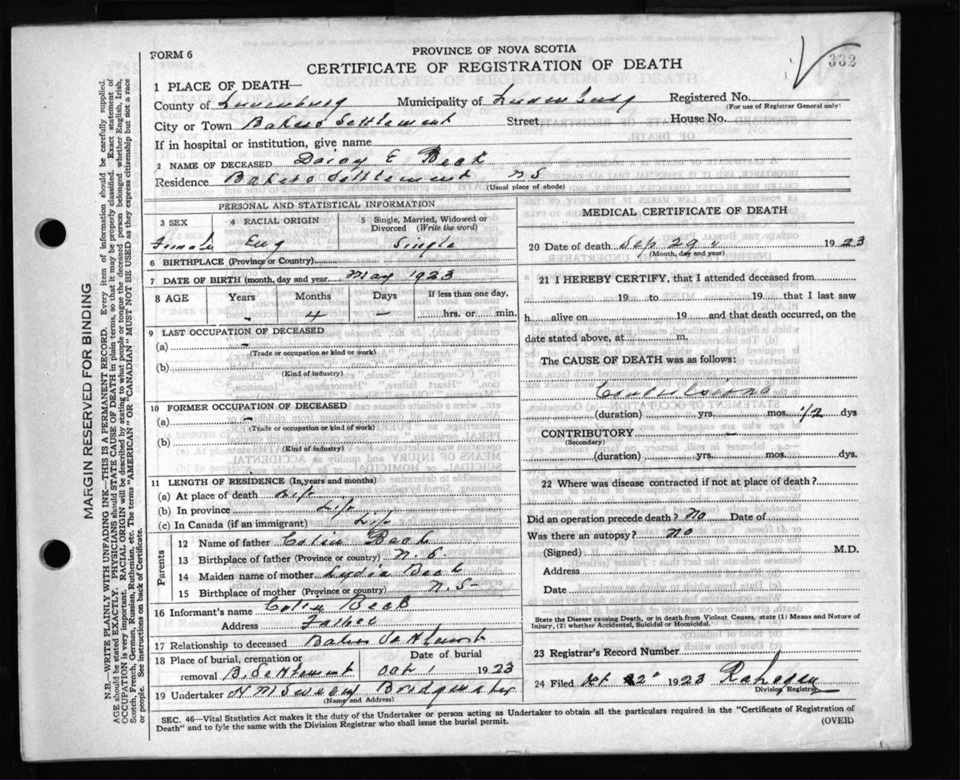 FORM 6
PROVINCE OF NOVA SCOTIA
CERTIFICATE OF REGISTRATION OF DEATH
332
1 PLACE OF DEATH—
County of Lunenburg Municipality of Lunenburg Registered No.
(For use of Registrar General only)
City or Town Bakers Settlement Street House No.
If in hospital or institution, give name
2 NAME OF DECEASED Daisy E Beck
Residence Bakers Settlement N S
(Usual place of abode)
PERSONAL AND STATISTICAL INFORMATION
3 SEX 4 RACIAL ORIGIN 5 Single, Married, Widowed or Divorced (Write the word)
Female Eng Single
6 BIRTHPLACE (Province or Country)
7 DATE OF BIRTH (month, day and year) May 1923
8 AGE Years Months Days If less than one day,
- 4 - hrs. or min.
9 LAST OCCUPATION OF DECEASED
(a) -
(Trade or occupation or kind of work)
(b)
(Kind of industry)
10 FORMER OCCUPATION OF DECEASED
(a) -
(Trade or occupation or kind of work)
(b)
(Kind of industry)
11 LENGTH OF RESIDENCE (In years and months)
(a) At place of death Life
(b) In province Life
(c) In Canada (if an immigrant) Life
Parents
12 Name of father Colin Beck
13 Birthplace of father (Province or country) N. S.
14 Maiden name of mother Lydia Beck
15 Birthplace of mother (Province or country) N. S-
16 Informant's name Colin Beck
Address Father
17 Relationship to deceased Bakers Settlement
18 Place of burial, cremation or Date of burial
removal B. Settlement Oct 1 1923
19 Undertaker H M Bridgewater
(Name and Address)
MEDICAL CERTIFICATE OF DEATH
20 Date of death Sep 29 1923
(Month, day and year)
21 I HEREBY CERTIFY, that I attended deceased from
19 to 19 that I last saw
h alive on 19 and that death occurred, on the
date stated above, at m.
The CAUSE OF DEATH was as follows:
(duration) yrs. mos. 1/2 dys
CONTRIBUTORY -
(Secondary)
(duration) yrs. mos. dys.
22 Where was disease contracted if not at place of death?
Did an operation precede death? No Date of
Was there an autopsy? no
(Signed) M.D.
Address
Date
State the Disease causing Death, or in death from Violent Causes, state (1) Means and Nature of Injury, (2) whether Accidental, Suicidal or Homicidal.
23 Registrar's Record Number
24 Filed 1923
Division Registrar
SEC. 46—Vital Statistics Act makes it the duty of the Undertaker or person acting as Undertaker to obtain all the particulars required in the "Certificate of Registration of
Death" and to fyle the same with the Division Registrar who shall issue the burial permit.
(OVER)
MARGIN RESERVED FOR BINDING
N.B.—WRITE PLAINLY WITH UNFADING INK—THIS IS A PERMANENT RECORD. Every item of information should be carefully supplied.
AGE should be stated EXACTLY. PHYSICIANS should STATE CAUSE OF DEATH in plain terms, so that it may be properly classified. Exact statement of
OCCUPATION is very important. RACIAL ORIGIN will be described by stating to what people or tongue the deceased person belonged whether English, Irish,
Scotch, French, German, Russian, Ruthenian, etc. The terms "AMERICAN" or "CANADIAN" MUST NOT BE USED as they express citizenship but not a race
or people. See instructions on back of Certificate.